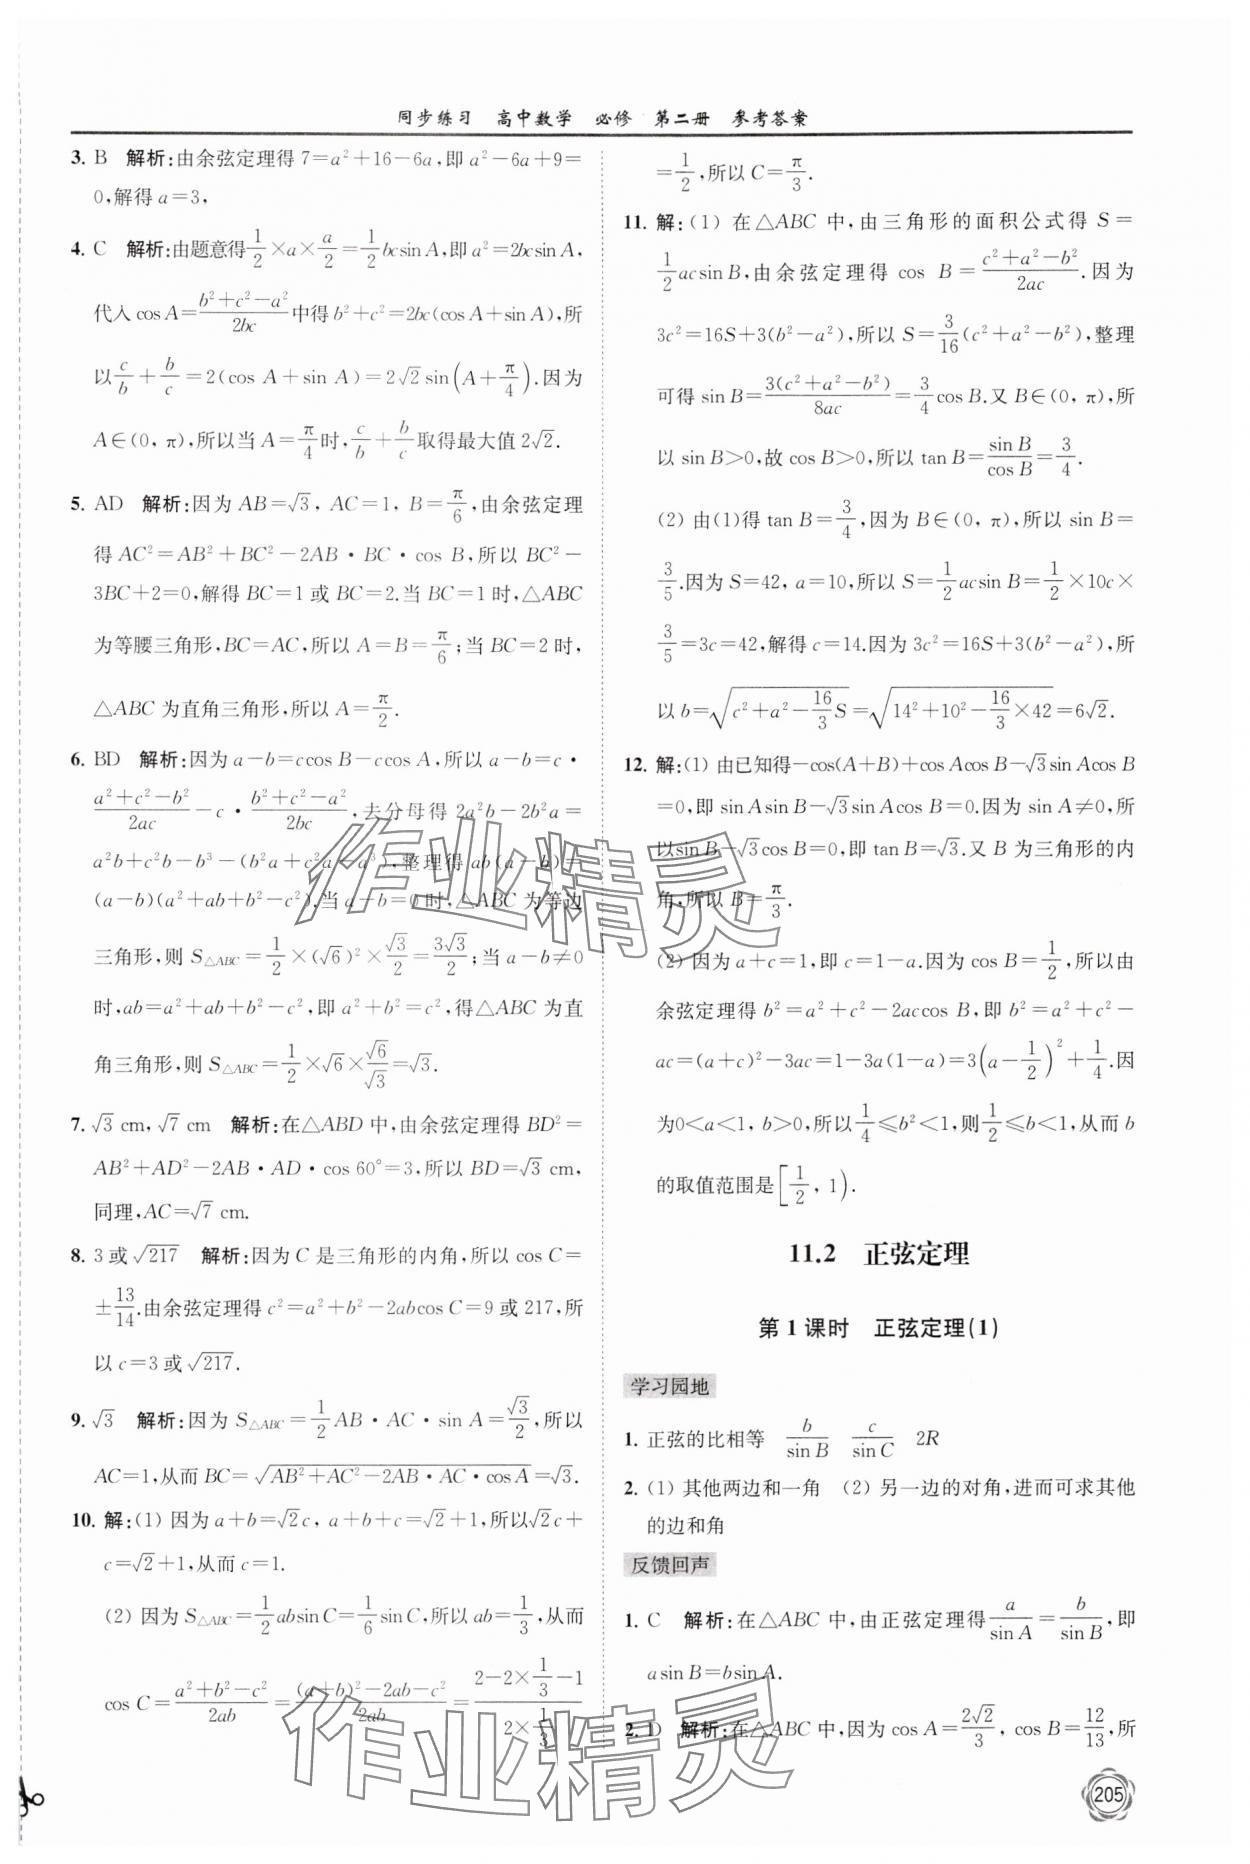 同步练习 高中数学 必修 第二册 参考答案
3. B 解析:由余弦定理得 7=a²+16-6a,即 a²-6a+9=
0,解得 a=3,
4. C 解析:由题意得 1/2×a×a/2=1/2 bcsin A,即 a²=2bcsin A,
代入 cos A=(b²+c²-a²)/2bc 中得 b²+c²=2bc(cos A+sin A),所
以 c/b+b/c=2(cos A+sin A)=2√2 sin(A+π/4).因为
A∈(0, π),所以当 A=π/4 时,c/b+b/c 取得最大值 2√2.
5. AD 解析:因为 AB=√3, AC=1, B=π/6,由余弦定理
得 AC²=AB²+BC²-2AB·BC·cos B,所以 BC²-
3BC+2=0,解得 BC=1 或 BC=2.当 BC=1 时,△ABC
为等腰三角形,BC=AC,所以 A=B=π/6;当 BC=2 时,
△ABC 为直角三角形,所以 A=π/2.
6. BD 解析:因为 a-b=ccos B-ccos A,所以 a-b=c·
(a²+c²-b²)/2ac-c·(b²+c²-a²)/2bc,去分母得 2a²b-2b²a=
a²b+c²b-b³-(b²a+c²a-a³),整理得 ab(a-b)=
(a-b)(a²+ab+b²-c²),当 a-b=0 时,△ABC 为等边
三角形,则 S△ABC=1/2×(√6)²×√3/2=3√3/2;当 a-b≠0
时,ab=a²+ab+b²-c²,即 a²+b²=c²,得△ABC 为直
角三角形,则 S△ABC=1/2×√6×√6/√3=√3.
7. √3 cm, √7 cm 解析:在△ABD 中,由余弦定理得 BD²=
AB²+AD²-2AB·AD·cos 60°=3,所以 BD=√3 cm,
同理,AC=√7 cm.
8. 3 或 √217 解析:因为 C 是三角形的内角,所以 cos C=
±13/14.由余弦定理得 c²=a²+b²-2abcos C=9 或 217,所
以 c=3 或 √217.
9. √3 解析:因为 S△ABC=1/2 AB·AC·sin A=√3/2,所以
AC=1,从而 BC=√(AB²+AC²-2AB·AC·cos A)=√3.
10. 解:(1) 因为 a+b=√2c, a+b+c=√2+1,所以√2c+
c=√2+1,从而 c=1.
(2) 因为 S△ABC=1/2 absin C=1/6 sin C,所以 ab=1/3,从而
cos C=(a²+b²-c²)/2ab=((a+b)²-2ab-c²)/2ab=(2-2×1/3-1)/(2×1/3)
=1/2,所以 C=π/3.
11. 解:(1) 在△ABC 中,由三角形的面积公式得 S=
1/2 acsin B,由余弦定理得 cos B=(c²+a²-b²)/2ac.因为
3c²=16S+3(b²-a²),所以 S=3/16(c²+a²-b²),整理
可得 sin B=3(c²+a²-b²)/8ac=3/4 cos B.又 B∈(0, π),所
以 sin B>0,故 cos B>0,所以 tan B=sin B/cos B=3/4.
(2) 由(1)得 tan B=3/4,因为 B∈(0, π),所以 sin B=
3/5.因为 S=42, a=10,所以 S=1/2 acsin B=1/2×10c×
3/5=3c=42,解得 c=14.因为 3c²=16S+3(b²-a²),所
以 b=√(c²+a²-16/3 S)=√(14²+10²-16/3×42)=6√2.
12. 解:(1) 由已知得-cos(A+B)+cos Acos B-√3sin Acos B
=0,即 sin Asin B-√3sin Acos B=0.因为 sin A≠0,所
以sin B-√3cos B=0,即 tan B=√3.又 B 为三角形的内
角,所以 B=π/3.
(2) 因为 a+c=1,即 c=1-a.因为 cos B=1/2,所以由
余弦定理得 b²=a²+c²-2accos B,即 b²=a²+c²-
ac=(a+c)²-3ac=1-3a(1-a)=3(a-1/2)²+1/4.因
为0<a<1, b>0,所以 1/4≤b²<1,则 1/2≤b<1,从而 b
的取值范围是[1/2, 1).
11.2 正弦定理
第 1 课时 正弦定理(1)
学习园地
1. 正弦的比相等 b/sin B c/sin C 2R
2. (1) 其他两边和一角 (2) 另一边的对角,进而可求其他
的边和角
反馈回声
1. C 解析:在△ABC 中,由正弦定理得 a/sin A=b/sin B,即
asin B=bsin A.
2. D 解析:在△ABC 中,因为 cos A=2√2/3, cos B=12/13,所
205
作业精灵
作业精灵